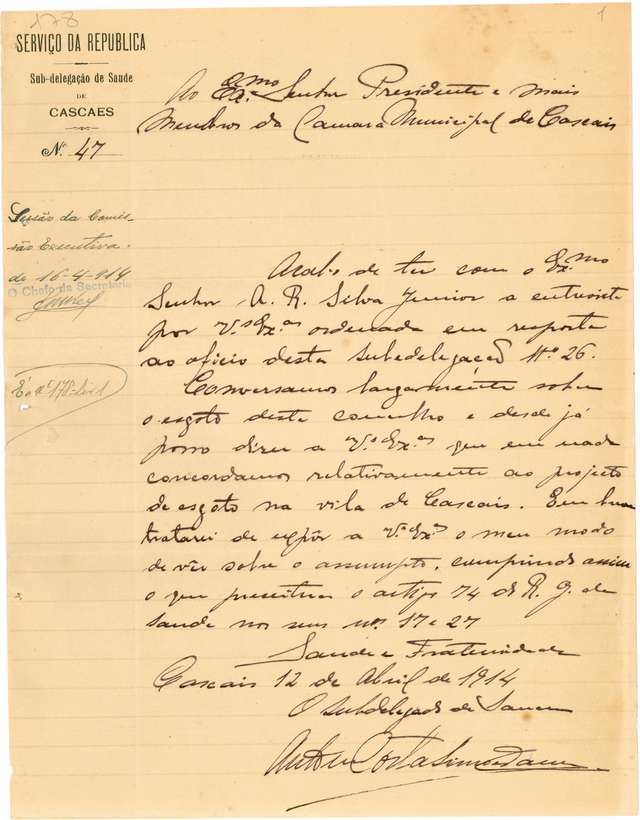 178
1
SERVIÇO DA REPUBLICA
Sub-delegação de Saude
DE
CASCAES
N.º 47
Ao Ex.mo Senhor Presidente e mais
Membros da Camara Municipal de Cascais
Sessão da Comis-
são Executiva.
de 16-4-914
O Chefe da Secretaria
E. nº 178-Liv 1
Acabo de ter com o Ex.mo
Senhor A. R. Silva Junior a entrevista
por V.as Ex.as ordenada em resposta
ao oficio desta subdelegação Nº 26.
Conversamos largamente sobre
o esgoto deste concelho e desde já
posso dizer a V.as Ex.as que em nada
concordamos relativamente ao projecto
de esgoto na vila de Cascais. Em
tratarei de expôr a V.as Ex.as o meu modo
de vêr sobre o assumpto, cumprindo assim
o que preceitua o artigo 74 do R. G. de
Saude nos seus nos 17 e 27
Saude e Fraternidade
Cascais 12 de Abril de 1914
O subdelegado de Saude
Costa